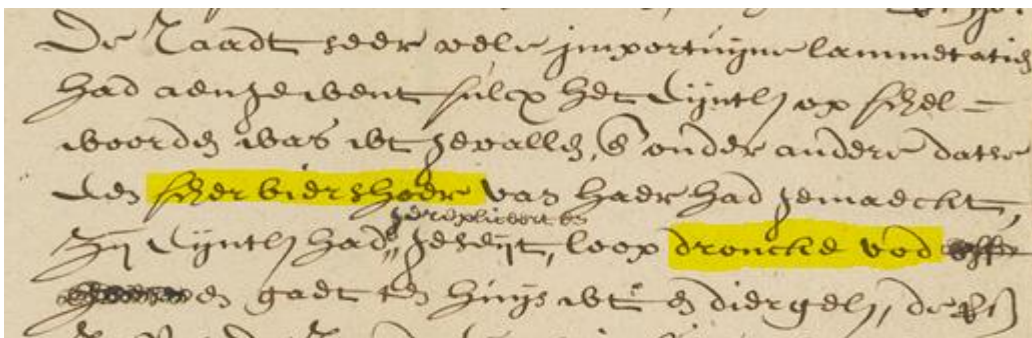 De Raadt seer vele importuijne lammetatien
had aengewent sulcx het eijntl op schel=
woorden was wt gevallen, en onder andere datse
een scherbiershoer van haer had gemaeckt,
gerepliceert en
Zij eijntl had geseijt, loop droncke vod
en gaet ten huijs wt en diergel,